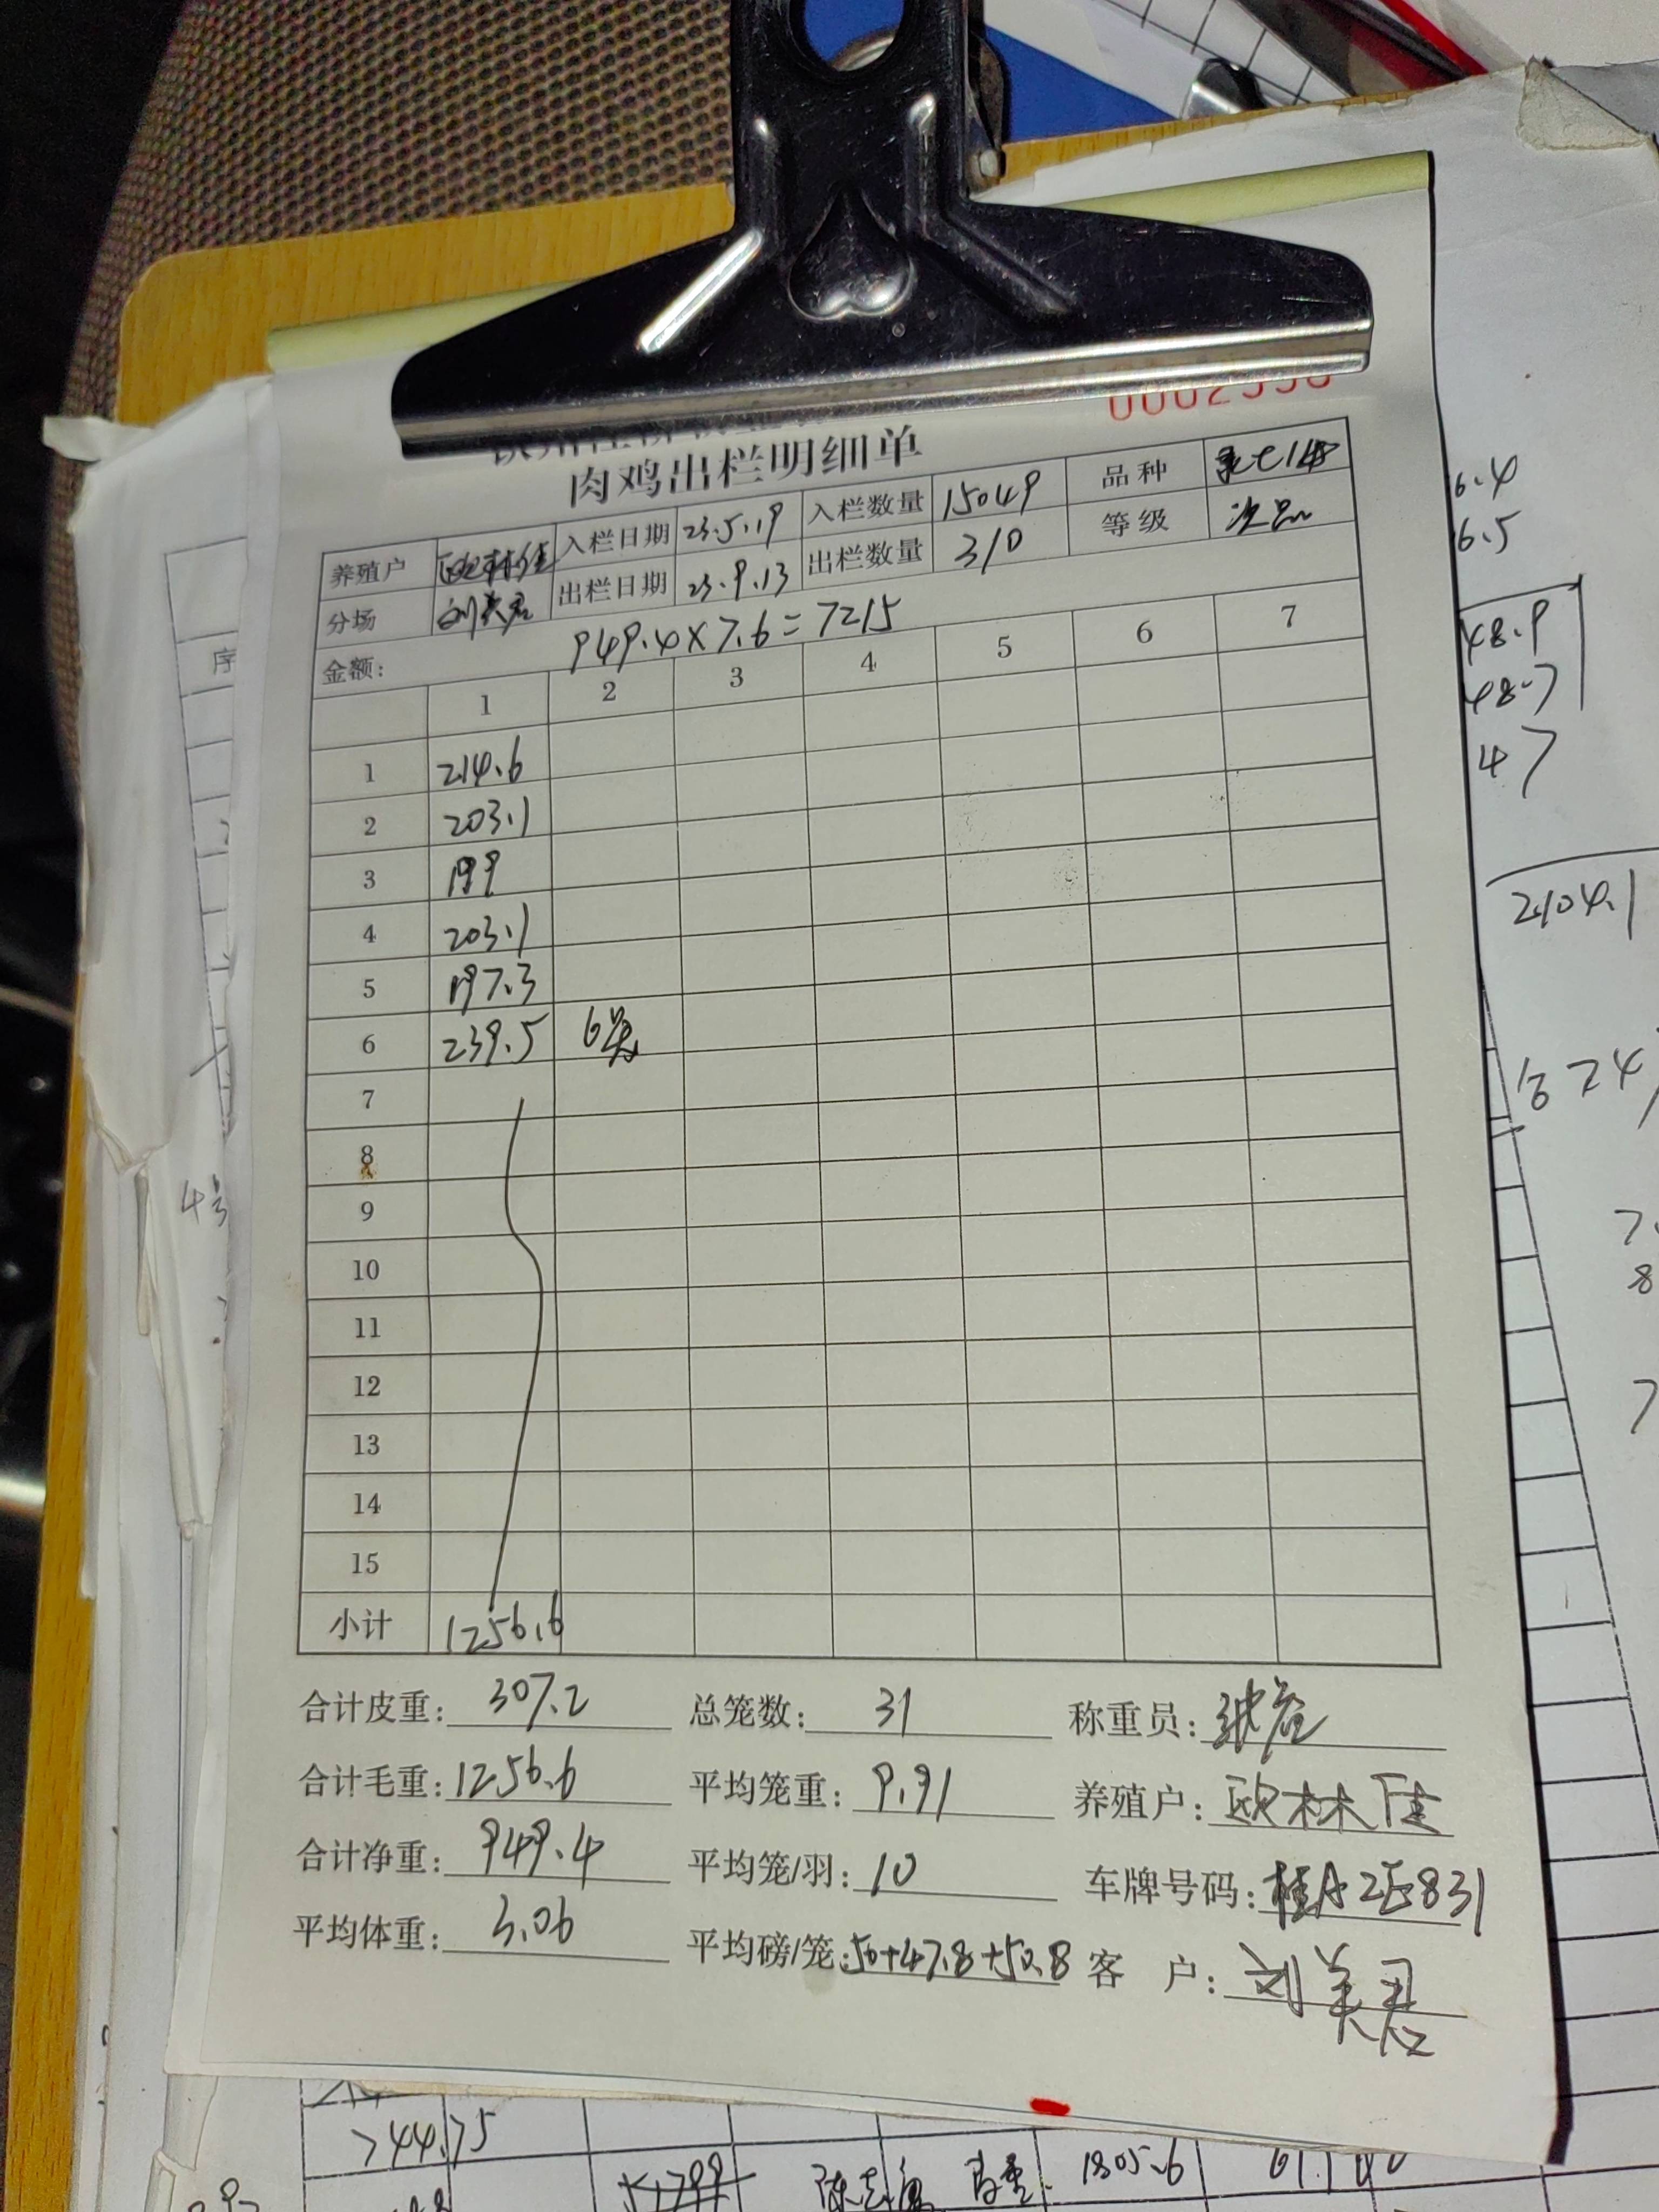 肉鸡出栏明细单
养殖户 欧林佳 入栏日期 23.5.19 入栏数量 15049 品种
分场 刘美君 出栏日期 23.9.13 出栏数量 310 等级 次品
金额: 949.4×7.6=7215
1 2 3 4 5 6 7
1 214.6
2 203.1
3 199
4 203.1
5 197.3
6 239.5 6
7
8
9
10
11
12
13
14
15
小计 1256.6
合计皮重: 307.2 总笼数: 31 称重员:
合计毛重: 1256.6 平均笼重: 9.91 养殖户: 欧林佳
合计净重: 949.4 平均笼/羽: 10 车牌号码: 桂A2E831
平均体重: 3.06 平均磅/笼: 50+47.8+50.8 客 户: 刘美君
6.4
6.5
48.9
48.7
47
2104.1
序
744.75
1805.6